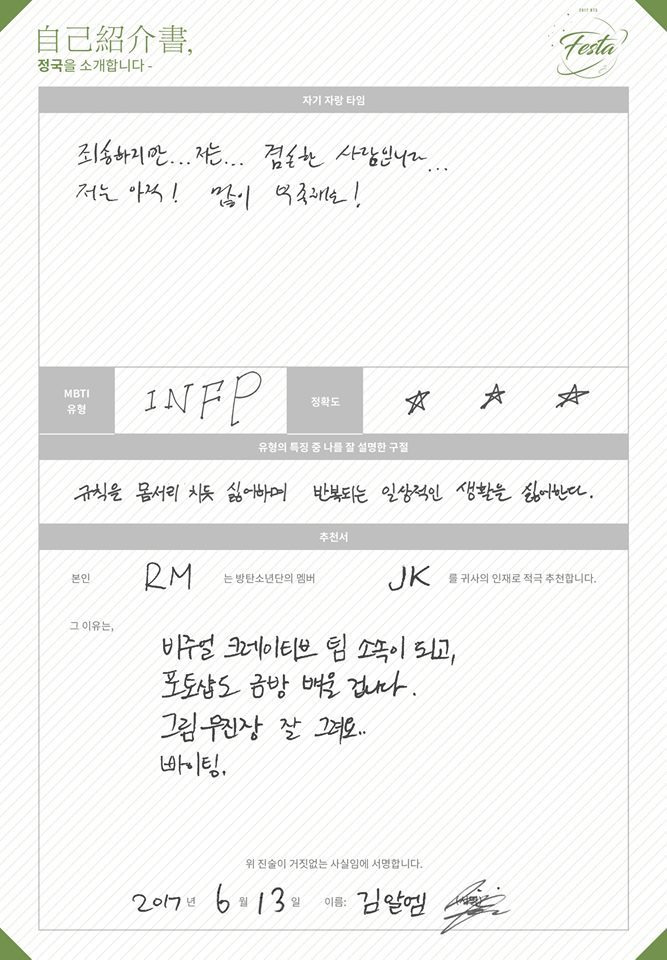 2017 BTS
Festa
自己紹介書,
정국을 소개합니다 -
자기 자랑 타임
죄송하지만... 저는... 겸손한 사람입니다...
저는 아직! 많이 부족해요!
MBTI
유형
INFP
정확도
☆ ☆ ☆
유형의 특징 중 나를 잘 설명한 구절
규칙을 몸서리 치듯 싫어하며 반복되는 일상적인 생활을 싫어한다.
추천서
본인 RM 는 방탄소년단의 멤버 JK 를 귀사의 인재로 적극 추천합니다.
그 이유는,
비주얼 크레이티브 팀 소속이 되고,
포토샵도 금방 배울 겁니다.
그림 무진장 잘 그려요..
빠이팅.
위 진술이 거짓없는 사실임에 서명합니다.
2017 년 6 월 13 일 이름: 김알엠